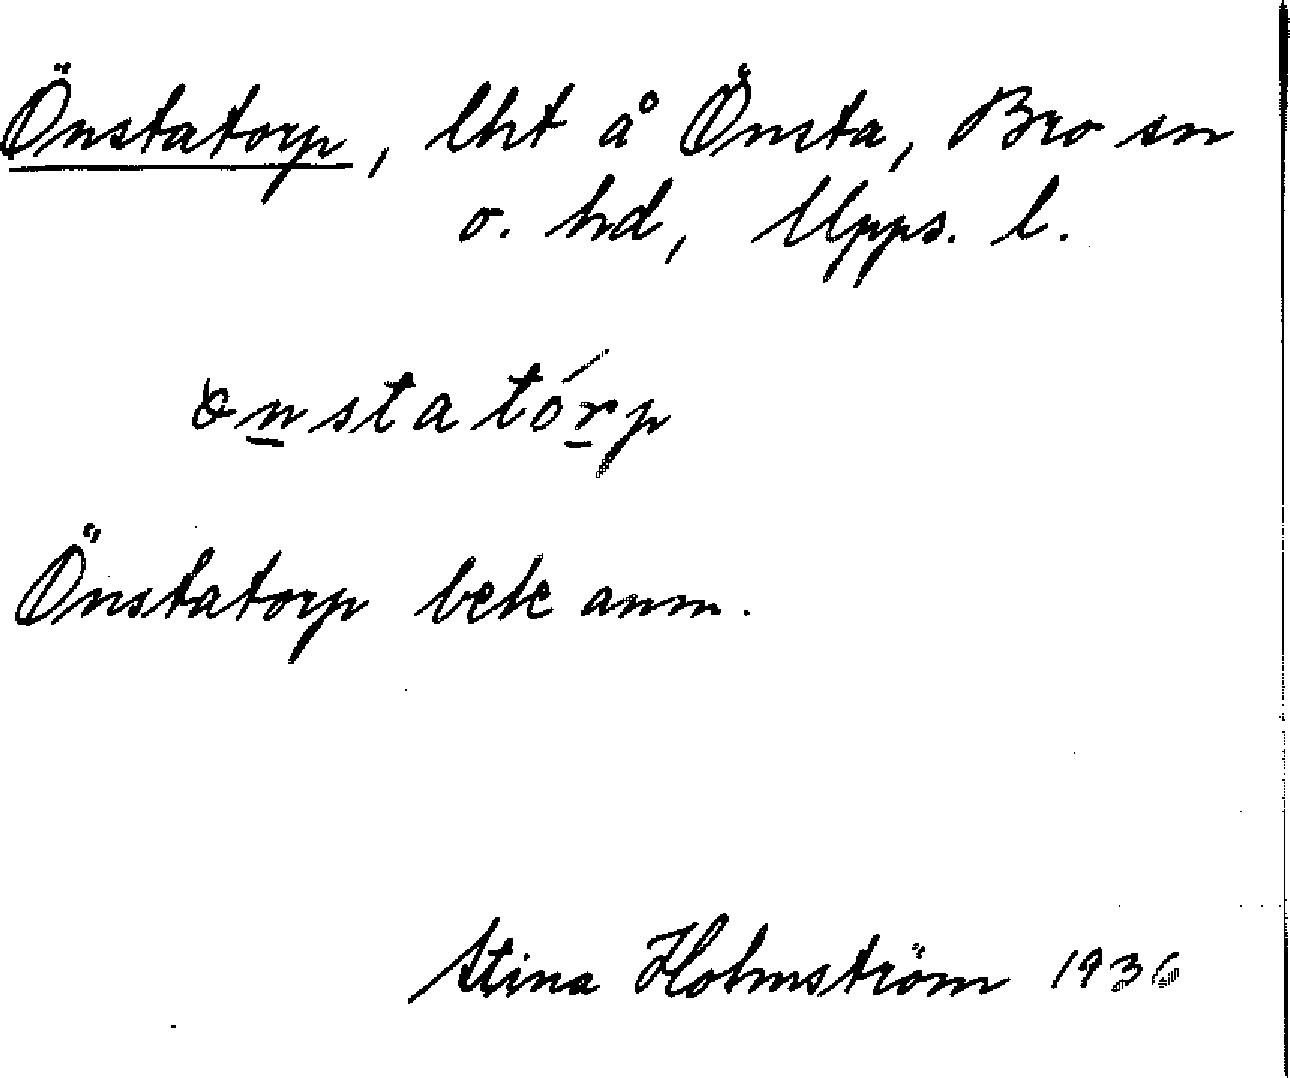 Önstatorp, lht å Önsta, Bro sn
o. hd, Upps. l.
önstatórp
Önstatorp bebc anm.
Stina Holmström 1936